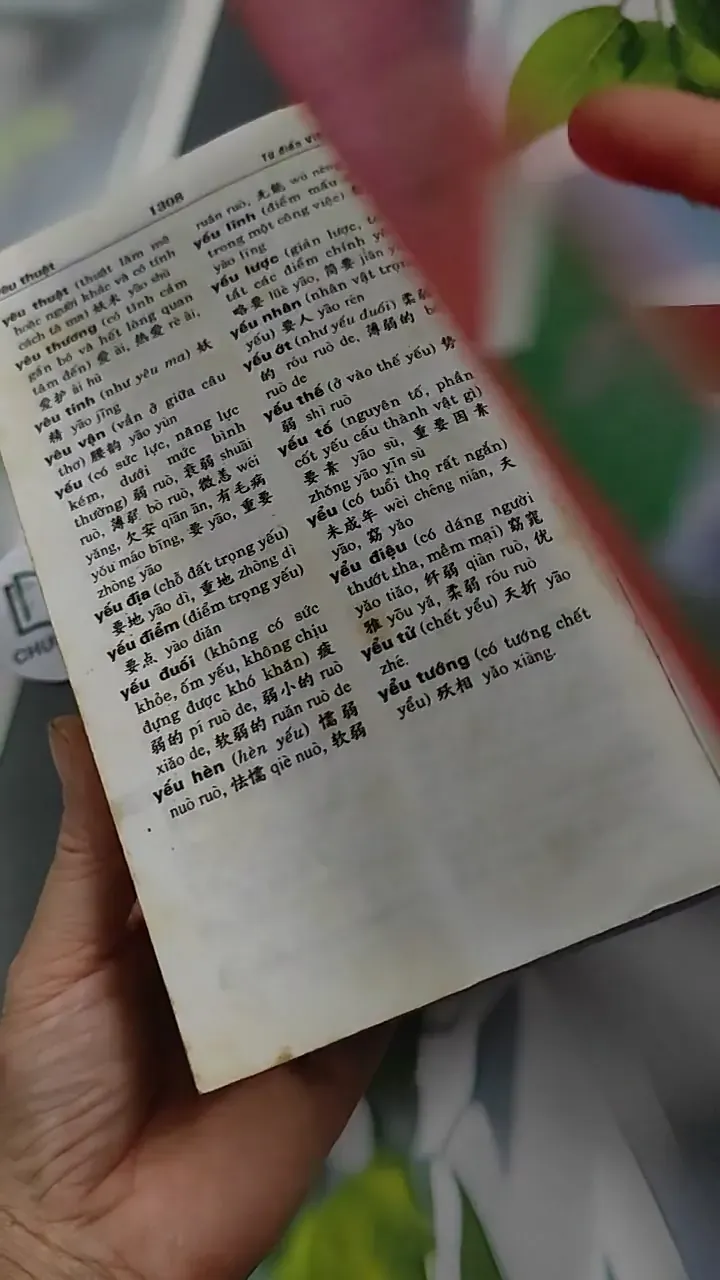 yêu thuật
1308
Từ điển Việ
yêu thuật (thuật làm mê
hoặc người khác và có tính
cách tà ma) 妖术 yāo shù
yêu thương (có tình cảm
gắn bó và hết lòng quan
tâm đến) 爱 ài, 热爱 rè ài,
爱护 ài hù
yêu tinh (như yêu ma) 妖
精 yāo jīng
yêu vận (vần ở giữa câu
thơ) 腰韵 yāo yùn
yếu (có sức lực, năng lực
kém, dưới mức bình
thường) 弱 ruò, 衰弱 shuāi
ruò, 薄弱 bò ruò, 微恙 wēi
yāng, 欠安 qiān ān, 有毛病
yǒu máo bīng, 要 yāo, 重要
zhòng yāo
yếu địa (chỗ đất trọng yếu)
要地 yāo dì, 重地 zhòng dì
yếu điểm (điểm trọng yếu)
要点 yào diǎn
yếu đuối (không có sức
khỏe, ốm yếu, không chịu
đựng được khó khăn) 疲
弱的 pí ruò de, 弱小的 ruò
xiǎo de, 软弱的 ruǎn ruò de
yếu hèn (hèn yếu) 懦弱
nuò ruò, 怯懦 qiè nuò, 软弱
ruǎn ruò, 无能 wú
yếu lĩnh (điểm mấu
trong một công việc)
yāo lǐng
yếu lược (giản lược,
tất các điểm chính
略要 lüè yāo, 简要 jiǎn
yếu nhân (nhân vật
yếu) 要人 yāo rén
yếu ớt (như yếu đuối) 柔
的 róu ruò de, 薄弱的
ruò de
yếu thế (ở vào thế yếu) 势
弱 shì ruò
yếu tố (nguyên tố, phần
cốt yếu cấu thành vật gì)
要素 yāo sù, 重要因素
zhōng yāo yīn sù
yểu (có tuổi thọ rất ngắn)
未成年 wèi chéng nián, 夭
yāo, 窈 yǎo
yểu điệu (có dáng người
thướt tha, mềm mại) 窈窕
yǎo tiǎo, 纤弱 qiàn ruò, 优
雅 yōu yǎ, 柔弱 róu ruò
yểu tử (chết yểu) 夭折 yāo
zhé.
yểu tướng (có tướng chết
yểu) 殀相 yāo xiàng.